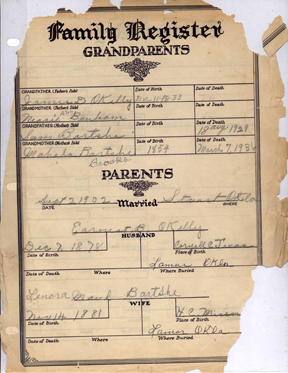 Family Register
GRANDPARENTS
GRANDFATHER (Father's Side) Date of Birth Date of Death
D OKelly
GRANDMOTHER (Father's Side) Date of Birth Date of Death
Bonham
GRANDFATHER (Mother's Side) Date of Birth Date of Death
Bartske 18 aug 1929
GRANDMOTHER (Mother's Side) Date of Birth Date of Death
Mahala Bartske 1854 March 7, 193
Brooks
PARENTS
Sept 2 1902 Stuart Okla
DATE Married WHERE
Earnest B OKelly
HUSBAND
Dec 7 1878 Texas
Date of Birth Place of Birth
Lamar Okla
Date of Death Where Where Buried
Lenora Maud Bartske
WIFE
Nov 14 1881 Missou
Date of Birth Place of Birth
Lamar Okla
Date of Death Where Where Buried